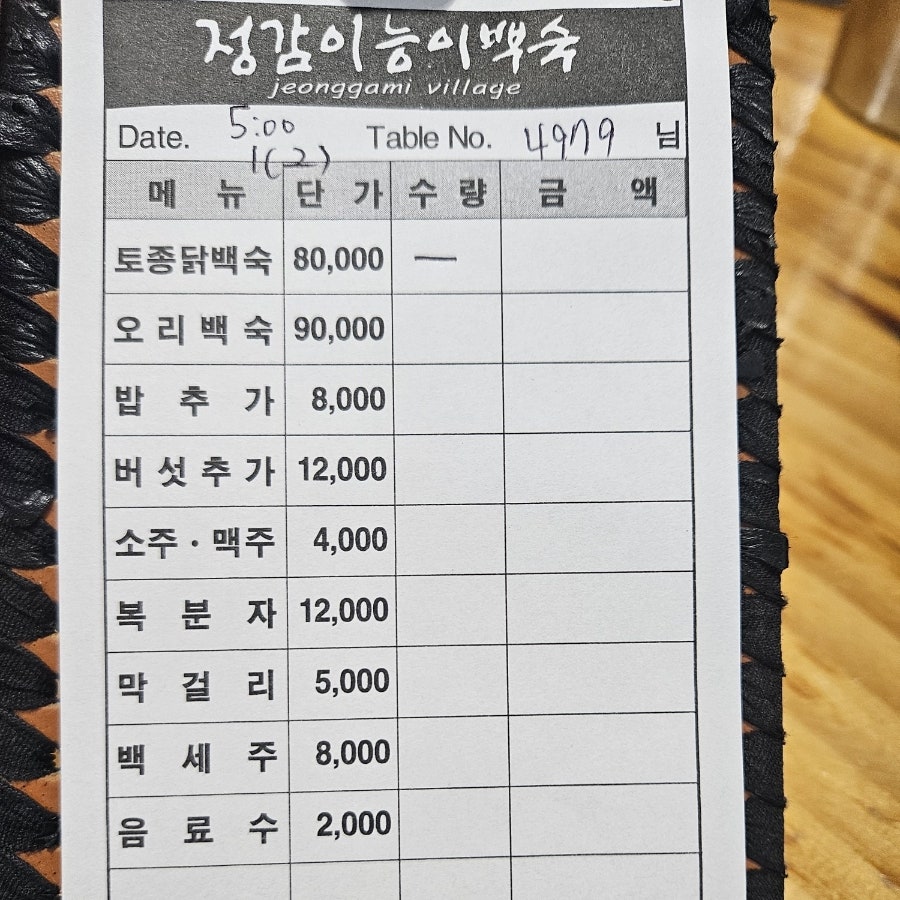 정감이능이백숙
jeonggami village
Date. 5:00 Table No. 4979 님
1(2)
메 뉴 단 가 수 량 금 액
토종닭백숙 80,000 一
오리백숙 90,000
밥 추 가 8,000
버섯추가 12,000
소주·맥주 4,000
복 분 자 12,000
막 걸 리 5,000
백 세 주 8,000
음 료 수 2,000